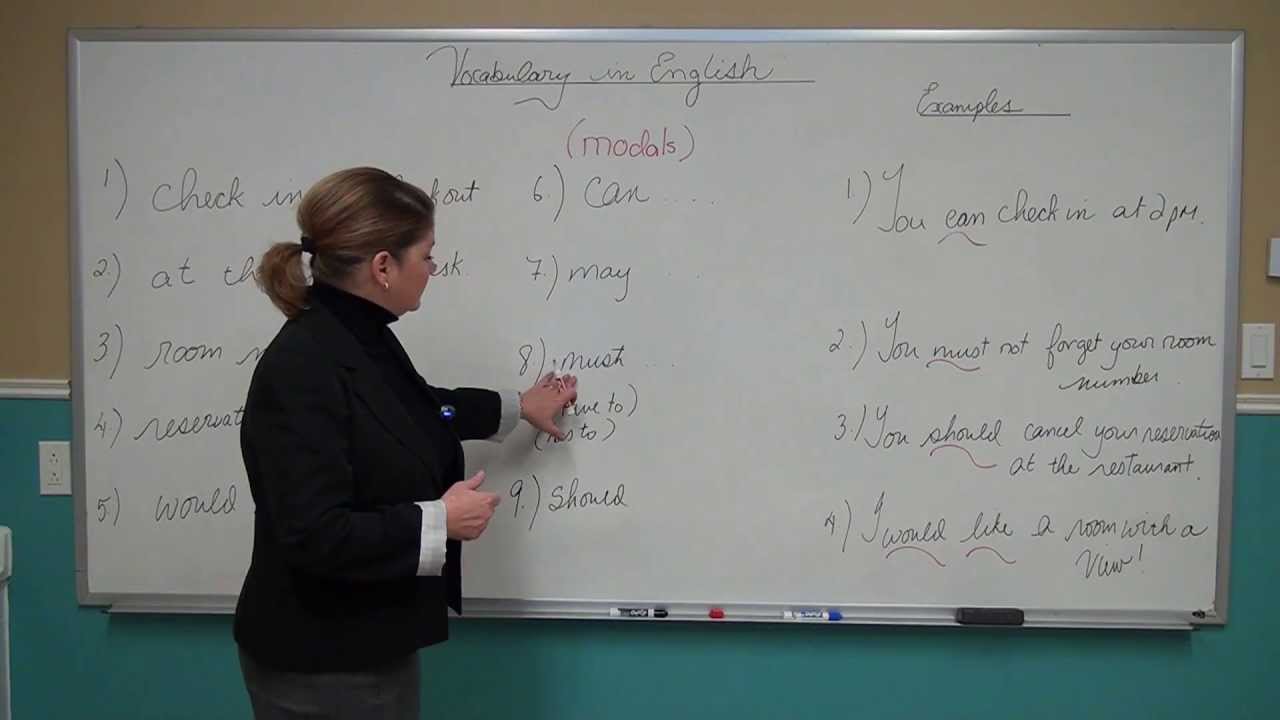 Vocabulary in English
(modals)
1) check in
2.) at
3) room
4)
5) would
6.) can ....
7.) may ...
8) must ...
9.) should
Examples
1.) You can check in at 2 pm.
2.) You must not forget your room
number.
3.) You should cancel your reservation
at the restaurant.
4) I would like a room with a
view!